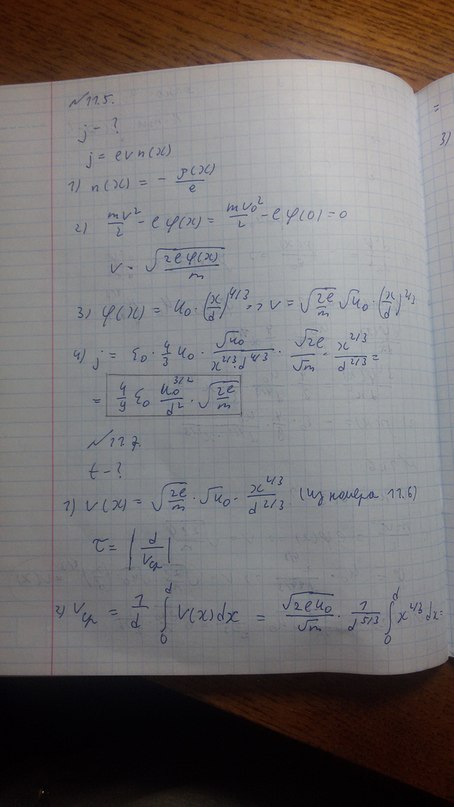 №11.5.
j - ?
j = e v n(x)
1) n(x) = - ρ(x)/e
2) mv²/2 - eφ(x) = mv₀²/2 - eφ(0) = 0
v = √(2eφ(x)/m)
3) φ(x) = U₀·(x/d)^4/3 => v = √(2e/m) √U₀·(x/d)^2/3
4) j = ε₀·4/9 U₀·√U₀/(x^2/3·d^4/3)·√2e/√m·x^2/3/d^2/3 =
= 4/9 ε₀ U₀^3/2/d²·√(2e/m)
№11.7.
t - ?
1) v(x) = √(2e/m)·√U₀·x^2/3/d^2/3 (из номера 11.6)
τ = |d/Vср|
2) Vср = 1/d·∫₀^d V(x)dx = √2eU₀/√m·1/d^5/3 ∫₀^d x^2/3 dx =
=
3)